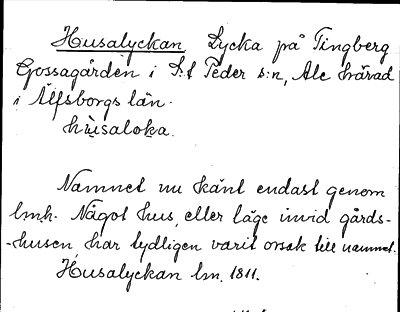 Husalyckan Lycka på Tingberg
Gossagården i S:t Peder s:n, Ale härad
i Älfsborgs län.
hùsaloka.
Namnet nu känt endast genom
lmh. Något hus, eller läge invid gårds-
-husen, har tydligen varit orsak till namnet.
Husalyckan lm. 1811.